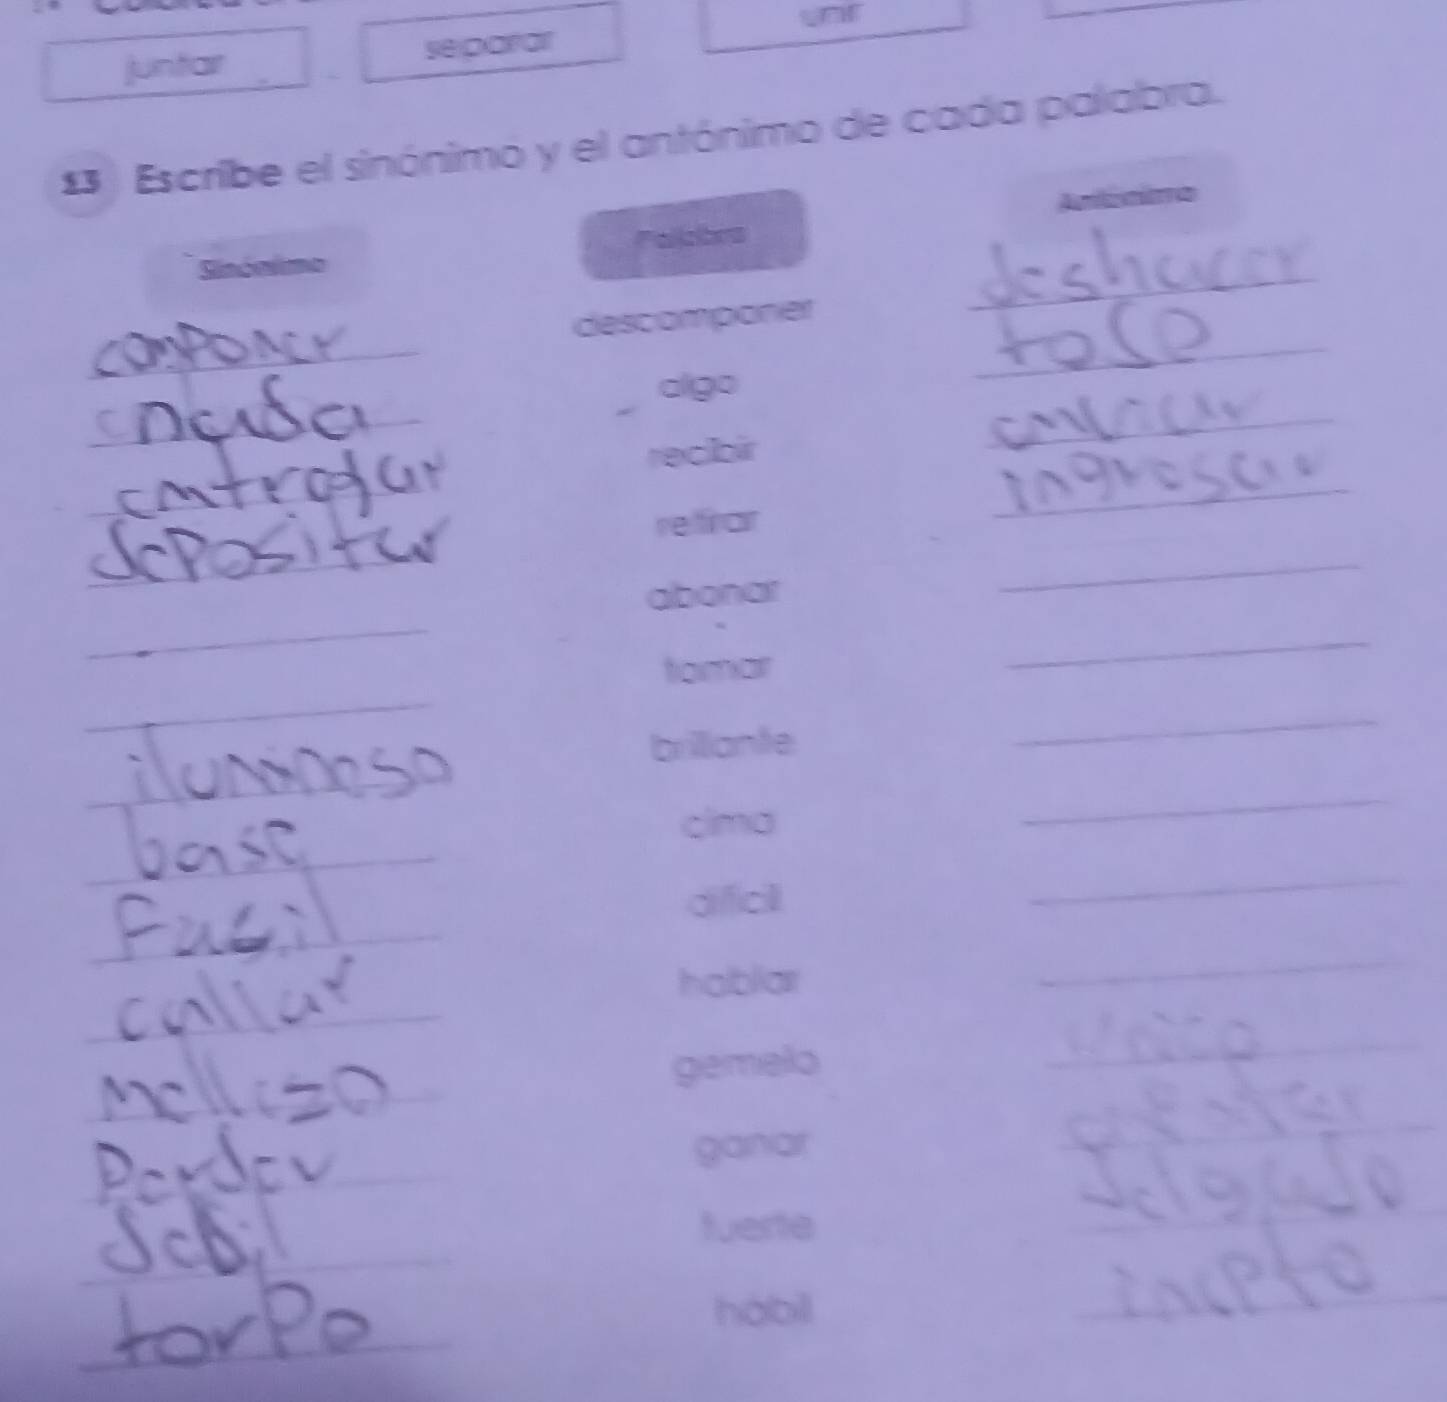 juntar separar unir
13 Escribe el sinónimo y el antónimo de cada palabra.
Sinónimo Palabra Antónimo
componer descomponer deshacer
algo
recibir enviar
depositar retirar ingresar
abonar
tomar
iluminoso brillante
base cima
Fasil difícil
callar hablar
gemelo unico
Perder ganar
debil fuerte delgado
torPe hábil inepto